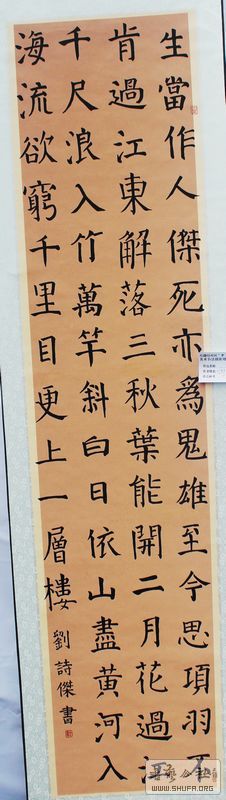 生當作人傑死亦爲鬼雄至今思項羽不
肯過江東解落三秋葉能開二月花過江
千尺浪入竹萬竿斜白日依山盡黄河入
海流欲窮千里目更上一層樓
劉詩傑書
WWW.SHUFA.COM